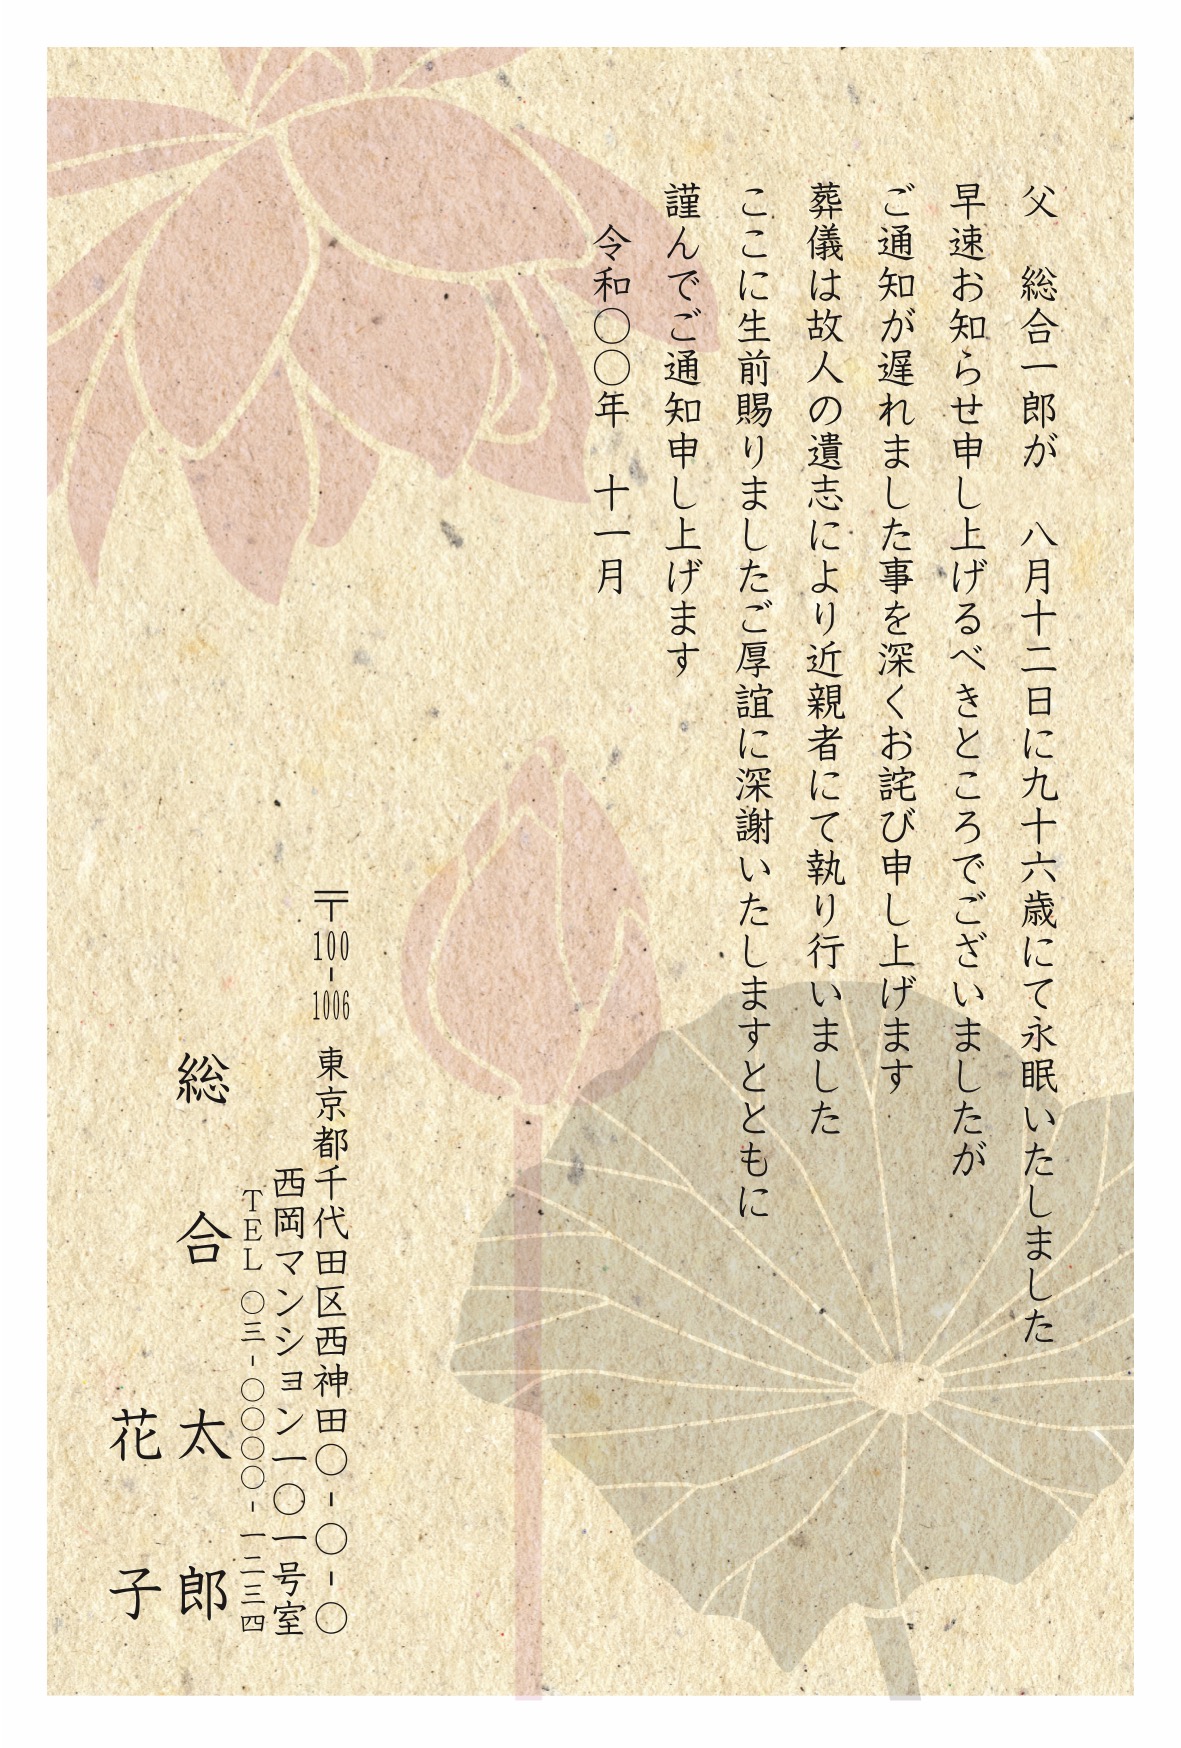 父　総合一郎が　八月十二日に九十六歳にて永眠いたしました
早速お知らせ申し上げるべきところでございましたが
ご通知が遅れました事を深くお詫び申し上げます
葬儀は故人の遺志により近親者にて執り行いました
ここに生前賜りましたご厚誼に深謝いたしますとともに
謹んでご通知申し上げます
令和〇〇年　十一月
〒100-1006　東京都千代田区西神田〇-〇-〇
西岡マンション一〇一号室
TEL 〇三-〇〇〇〇-一二三四
総　合　太　郎
花　子